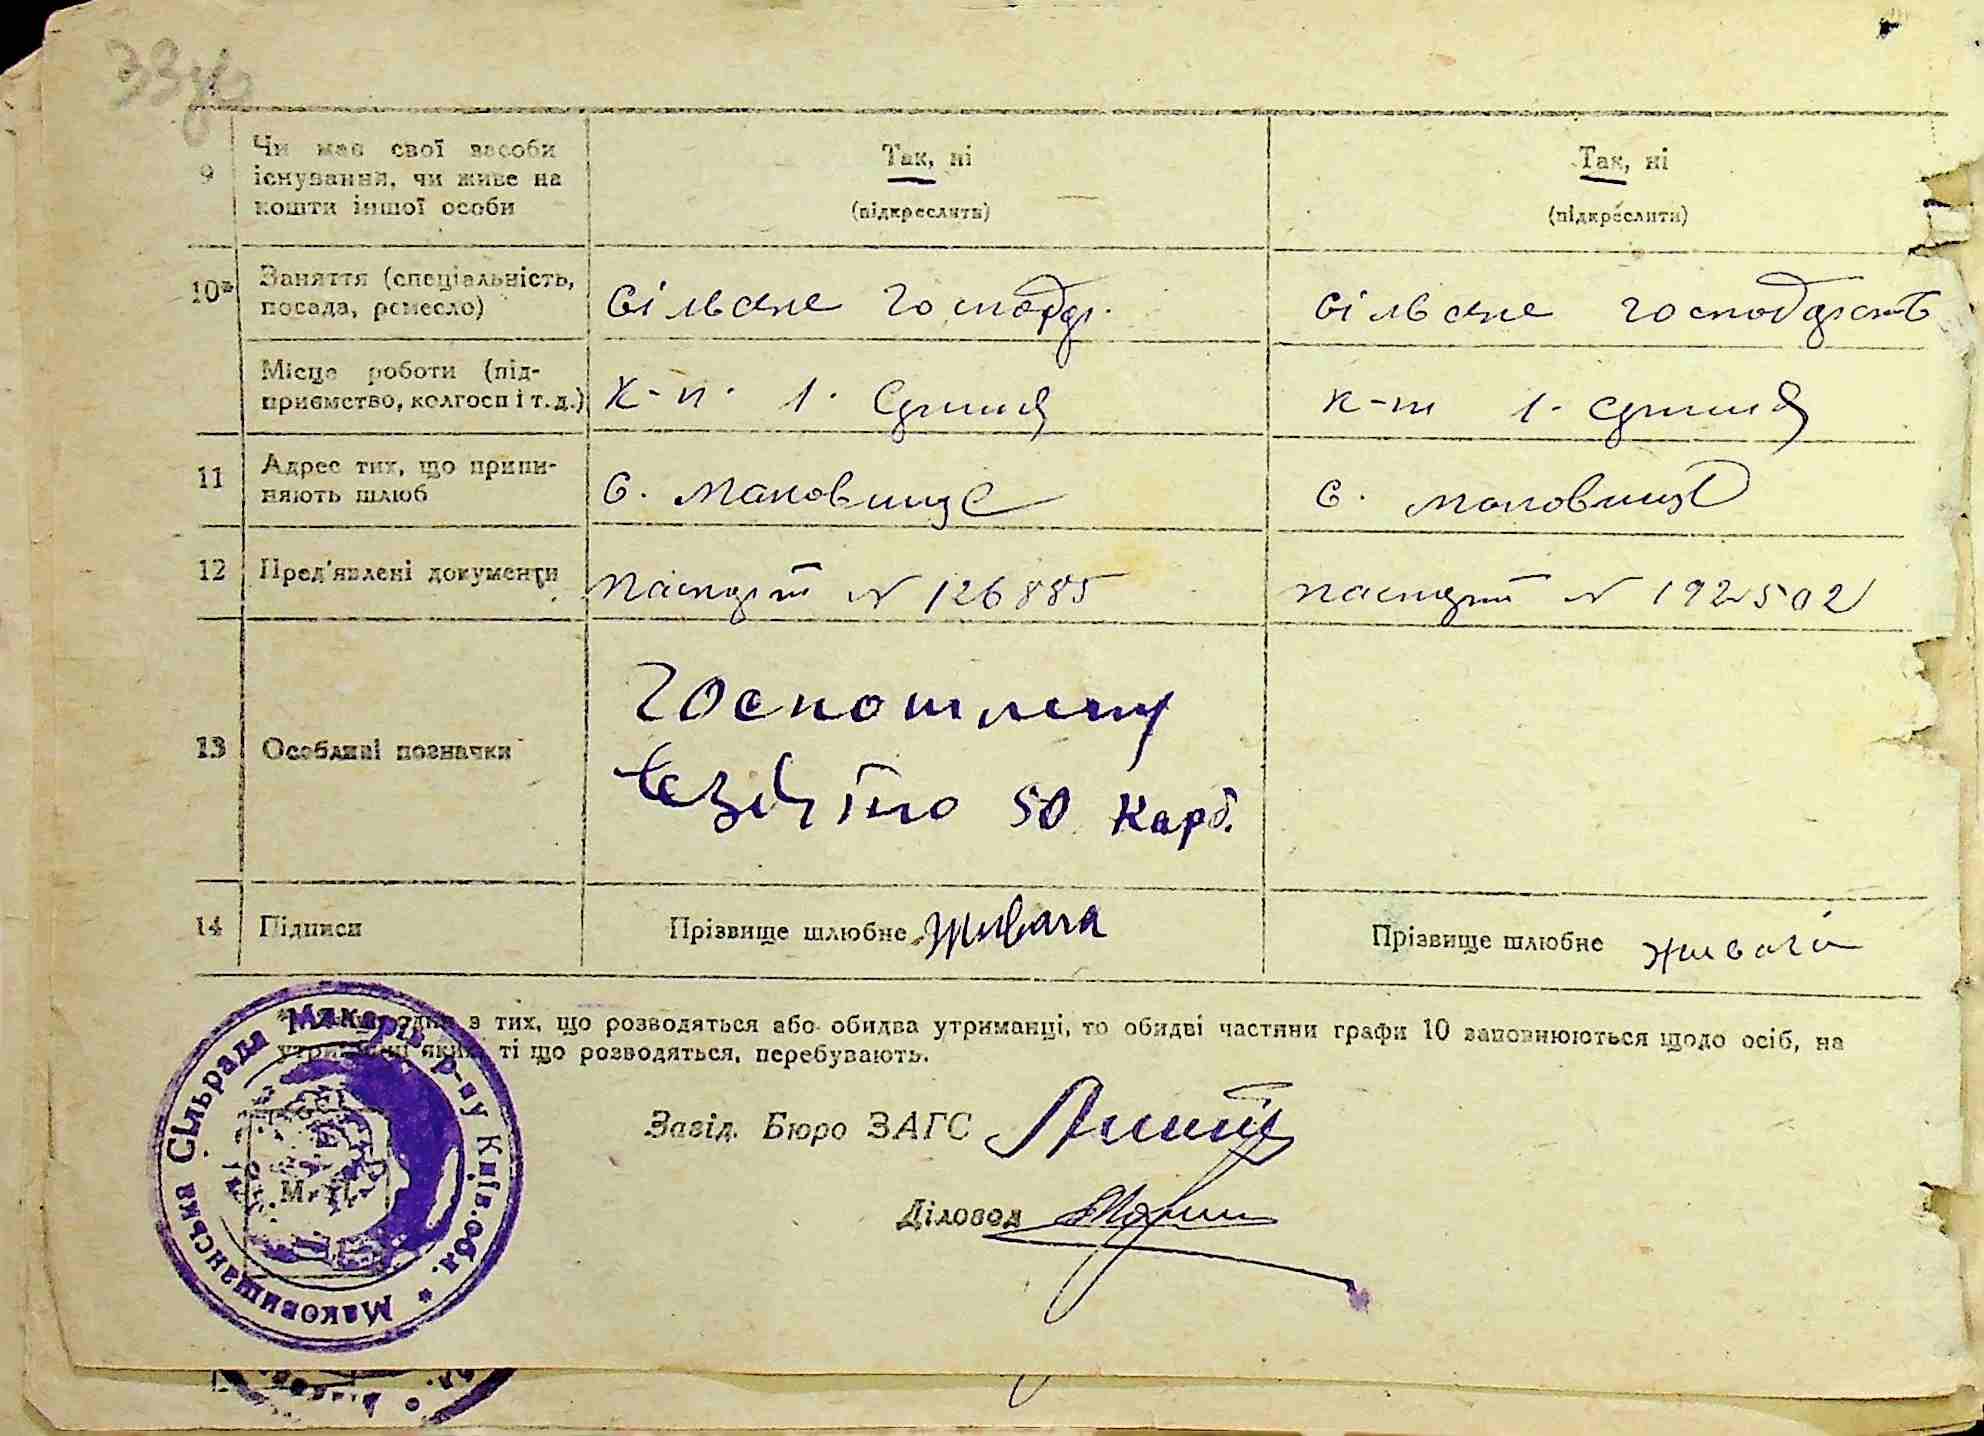 33
9 Чи має свої засоби Так, ні Так, ні
існування, чи живе на (підкреслить) (підкреслити)
кошти іншої особи
10* Заняття (спеціальність, сільске господар. сільске господарств
посада, ремесло)
Місце роботи (під-
приємство, колгосп і т. д.) к-п. 1. Сртня к-т 1. Сртня
11 Адрес тих, що припи- с. Маковище с. Маковище
няють шлюб
12 Пред'явлені документи паспорт № 126885 паспорт № 192502
13 Особливі позначки Госпошлину
50 карб.
14 Підписи Прізвище шлюбне Живага Прізвище шлюбне Живага
* одна з тих, що розводяться або обидва утриманці, то обидві частини графи 10 заповнюються щодо осіб, на
утриманні яких ті що розводяться, перебувають.
Маковищанська Сільрада Макарів р-ну Київ. обл. *
М. П.
Завід. Бюро ЗАГС
Діловод